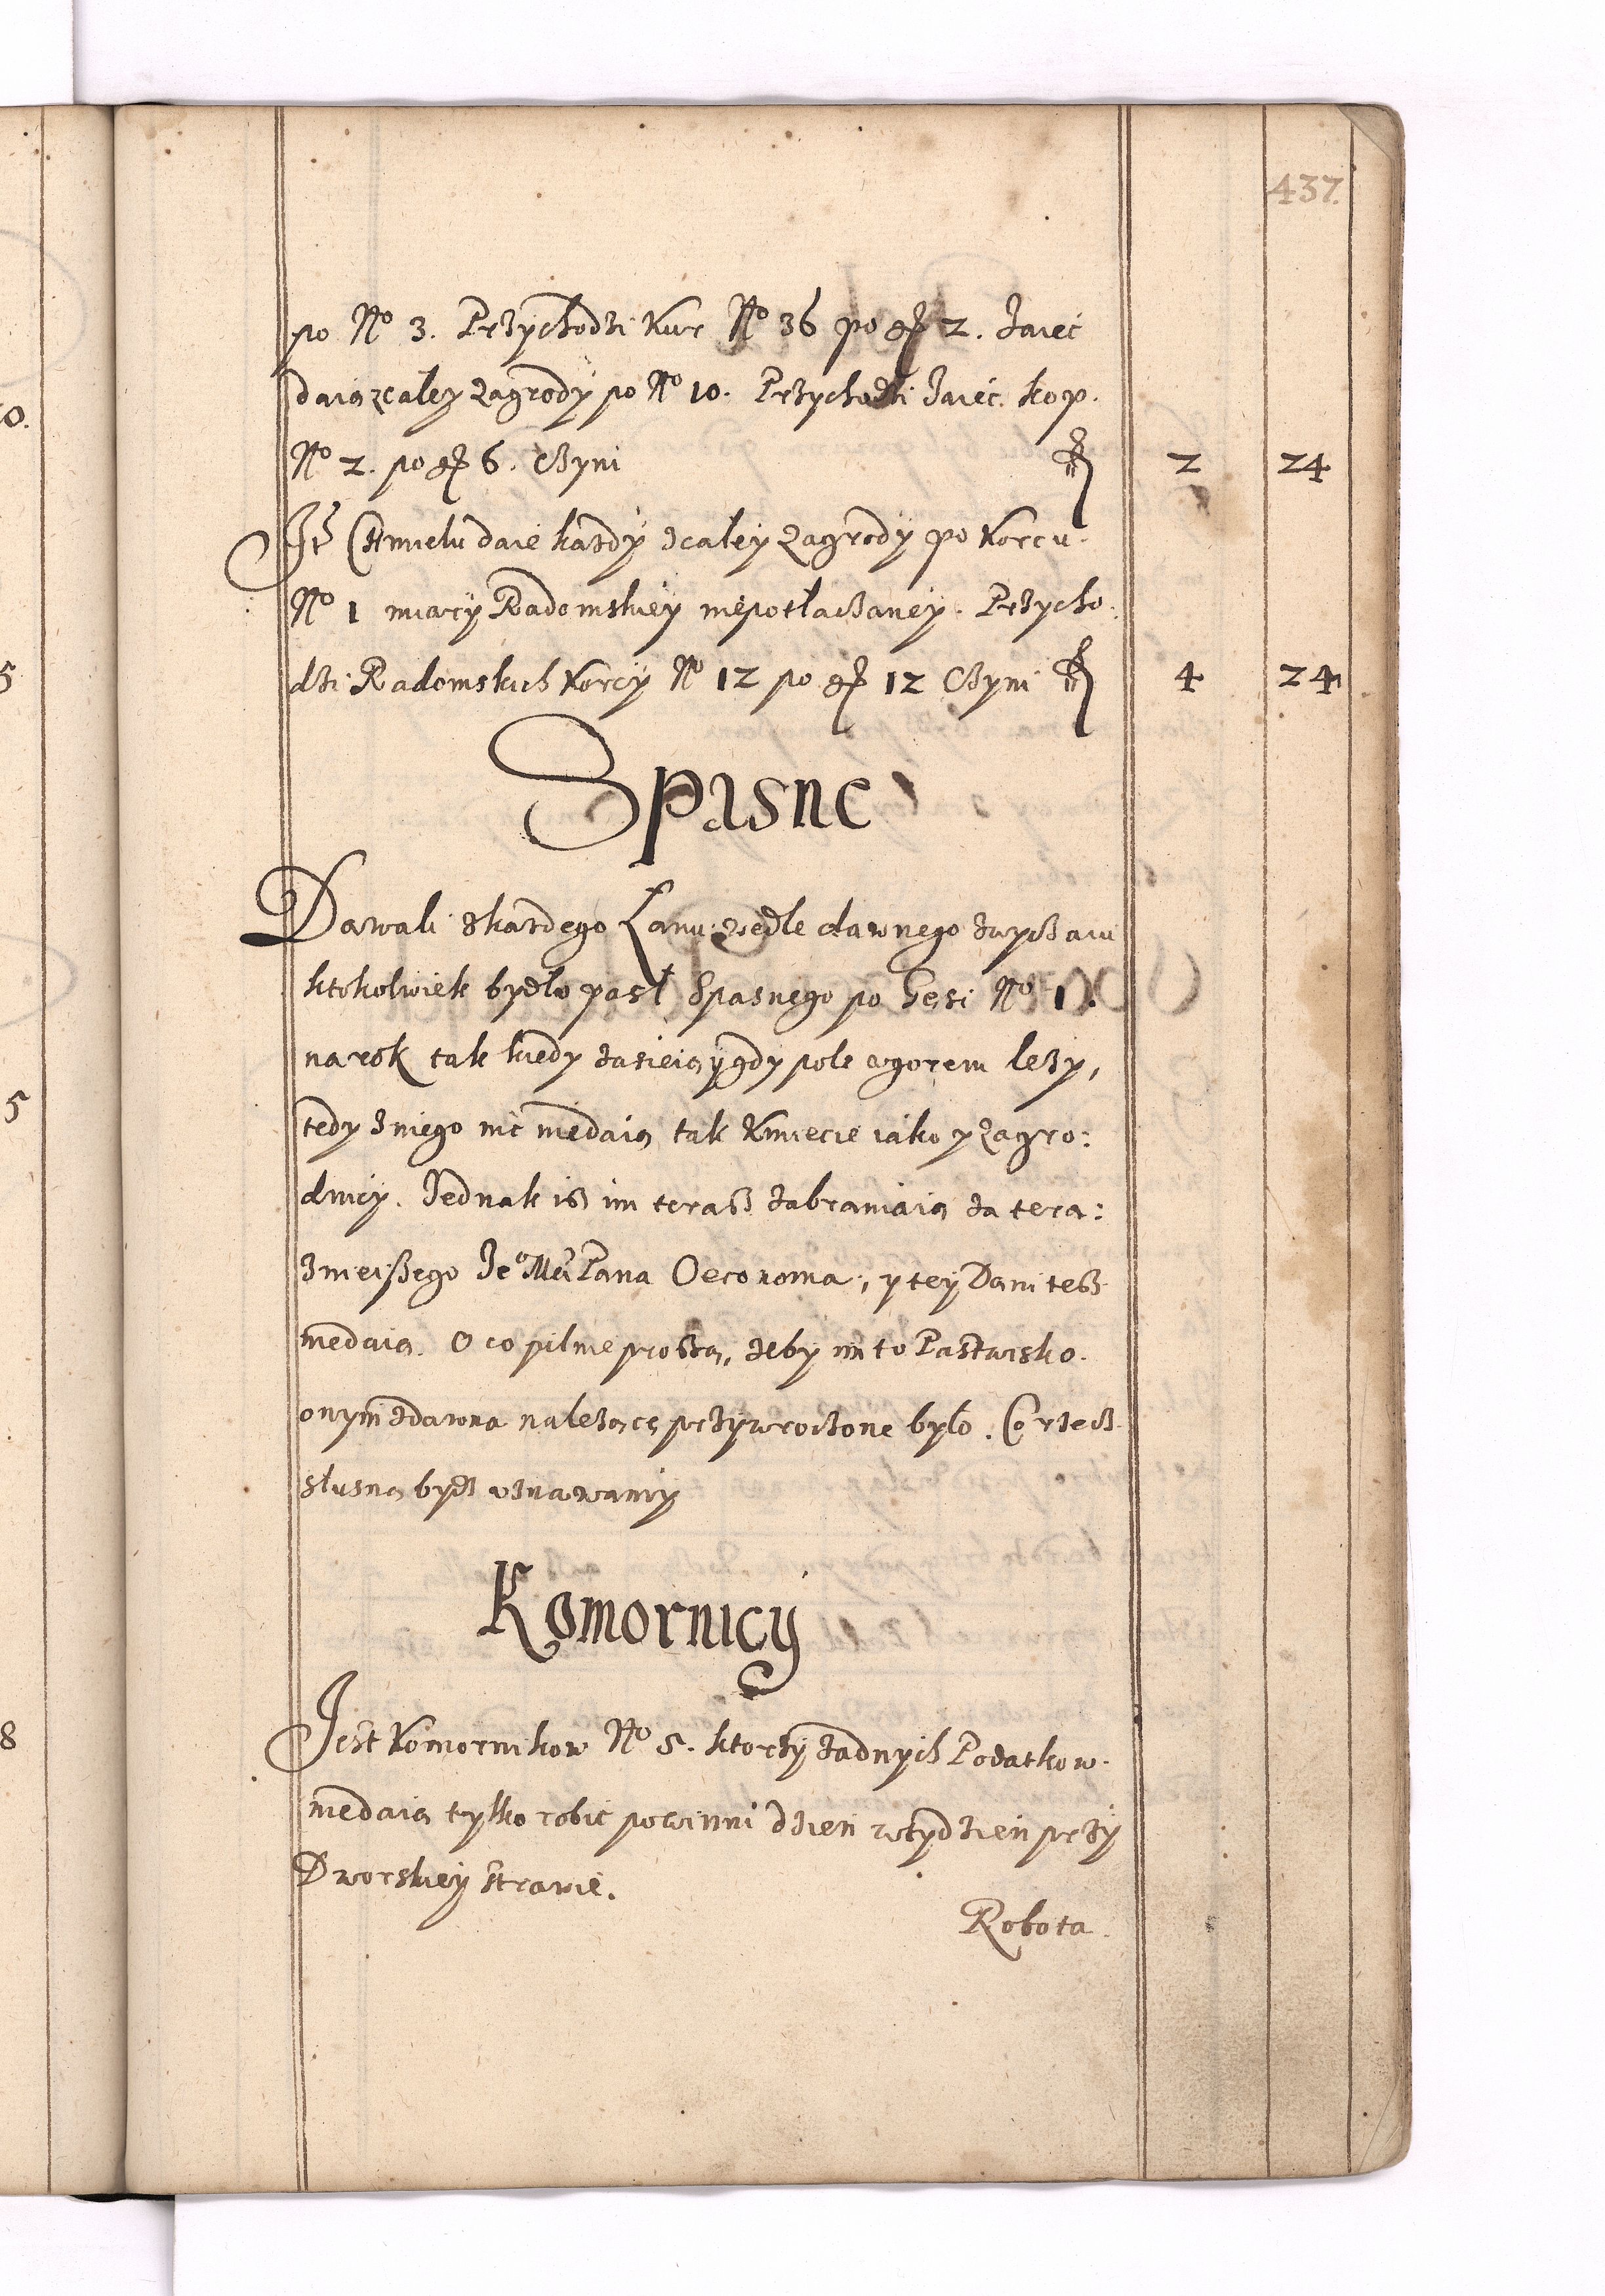 437.
po No 3. Przychodzi Kur No 36 po gr 2. Jaiec
daią z całey zagrody po No 10. Przychodzi Jaiec. kop.
No 2. po gr 6. Czyni fl 2 24
It Chmielu daie kazdy z całey Zagrody po Korcu.
No 1 miary Radomskiey niepotłaczaney. Przycho:
dzi Radomskich Korcy No 12 po gr 12 Czyni fl 4 24
Spasne
Dawali z kazdego Łanu wedle dawnego zwyczaiu
ktokolwiek bydło pasł Spasnego po Gęsi No 1.
na rok tak kiedy zasieią y gdy pole ugorem lezy,
tedy z niego nic niedaią tak Kmiecie iako y Zagro:
dnicy. Jednak isz im terasz zabraniaią za tera:
znieiszego Je Mci Pana Oeconoma, y tey Dani tesz
niedaią. O co pilnie proszą, zeby im to Pastwisko.
onym zdawna nalezące przywrocone było. Co rzecz
słuszną bydz uznawamy
Komornicy
Jest Komornikow No 5. ktorzy zadnych Podatkow.
niedaią tylko robic powinni dzien w tydzien przy
Dworskiey strawie.
Robota.
0.
5
5
8